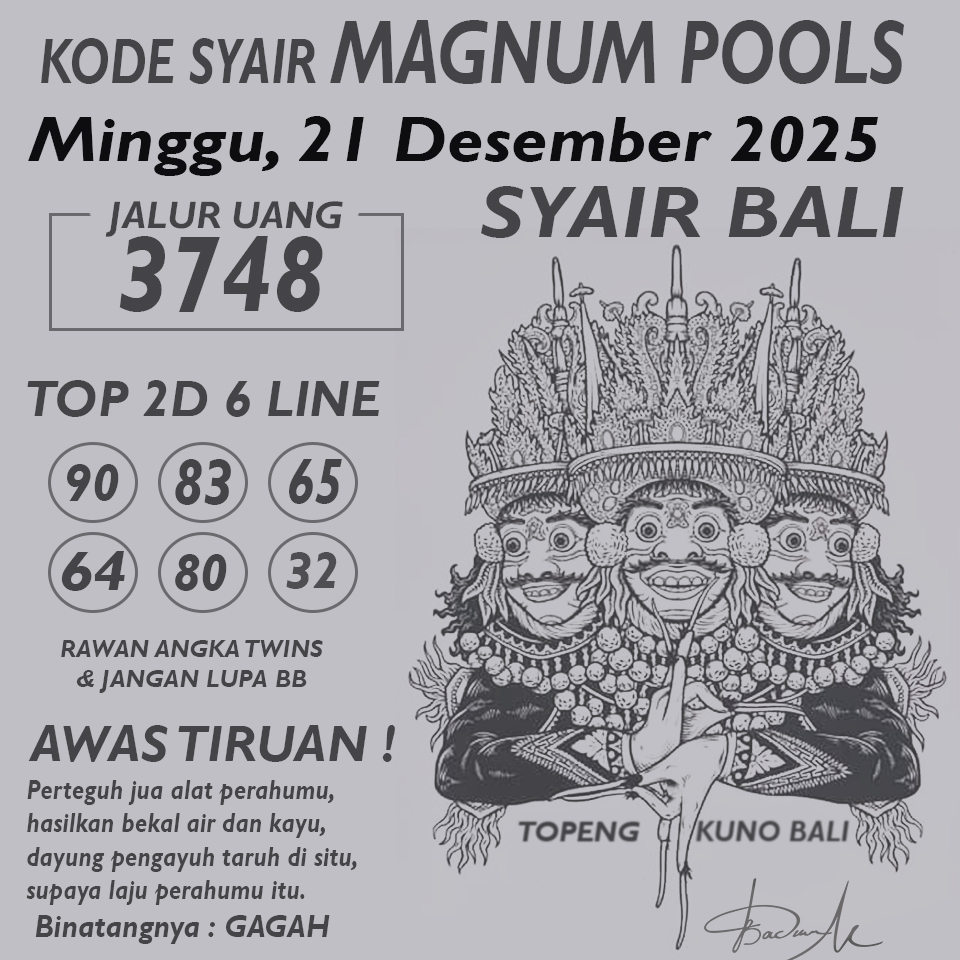 KODE SYAIR MAGNUM POOLS
Minggu, 21 Desember 2025
JALUR UANG
3748
SYAIR BALI
TOP 2D 6 LINE
90 83 65
64 80 32
RAWAN ANGKA TWINS
& JANGAN LUPA BB
AWAS TIRUAN !
Perteguh jua alat perahumu,
hasilkan bekal air dan kayu,
dayung pengayuh taruh di situ,
supaya laju perahumu itu.
Binatangnya : GAGAH
TOPENG KUNO BALI